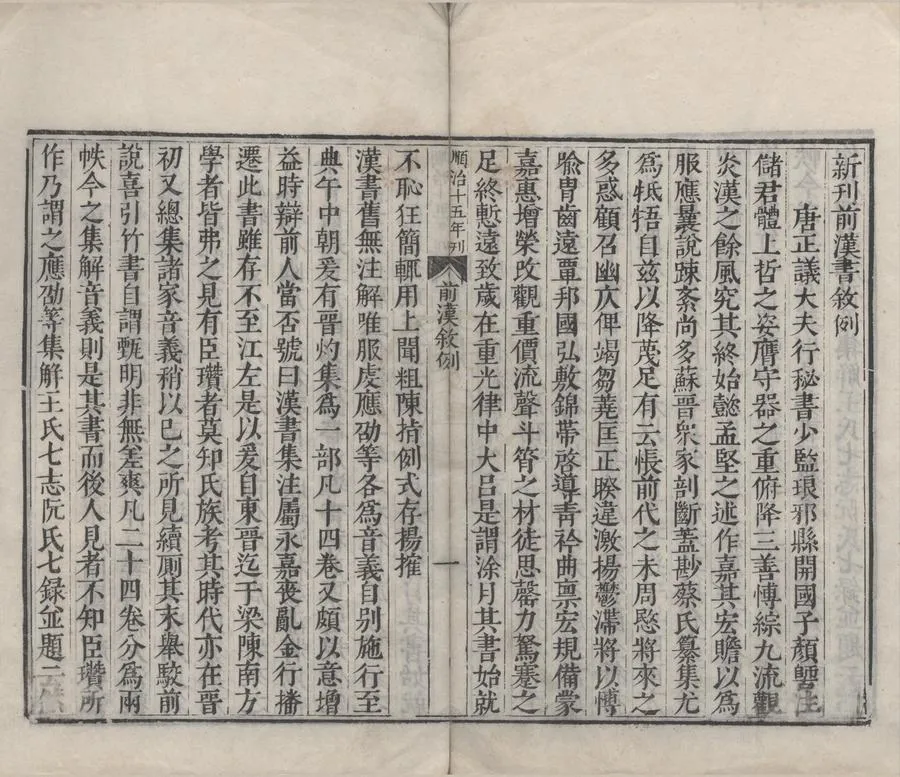 新刊前漢書敘例
唐正議大夫行秘書少監琅邪縣開國子顏
儲君體上哲之姿膺守器之重俯降三善愽綜九流觀
炎漢之餘風究其終始懿孟堅之述作嘉其宏贍以為
服應曩說踈紊尚多蘇晉衆家剖斷蓋尠蔡氏纂集尤
為牴牾自兹以降蔑足有云悵前代之未周愍將來之
多惑顧召幽仄俾竭芻蕘匡正睽違激揚鬱滯將以愽
喻冑齒遠覃邦國弘敷錦帶啓導青衿曲禀宏規備蒙
嘉惠增榮攺觀重價流聲斗筲之材徒思罄力駑蹇之
足終慙遠致歲在重光律中大吕是謂涂月其書始就
順治十五年刊
前漢敘例
一
不恥狂簡輒用上聞粗陳指例式存揚搉
漢書舊無注解唯服虔應劭等各為音義自别施行至
典午中朝爰有晉灼集為一部凡十四卷又頗以意增
益時辯前人當否號曰漢書集注屬永嘉喪亂金行播
遷此書雖存不至江左是以爰自東晉迄于梁陳南方
學者皆弗之見有臣瓚者莫知氏族考其時代亦在晉
初又總集諸家音義稍以已之所見續厠其末舉駮前
說喜引竹書自謂甄明非無差爽凡二十四卷分為兩
帙今之集解音義則是其書而後人見者不知臣瓚所
作乃謂之應劭等集解王氏七志阮氏七録並題云